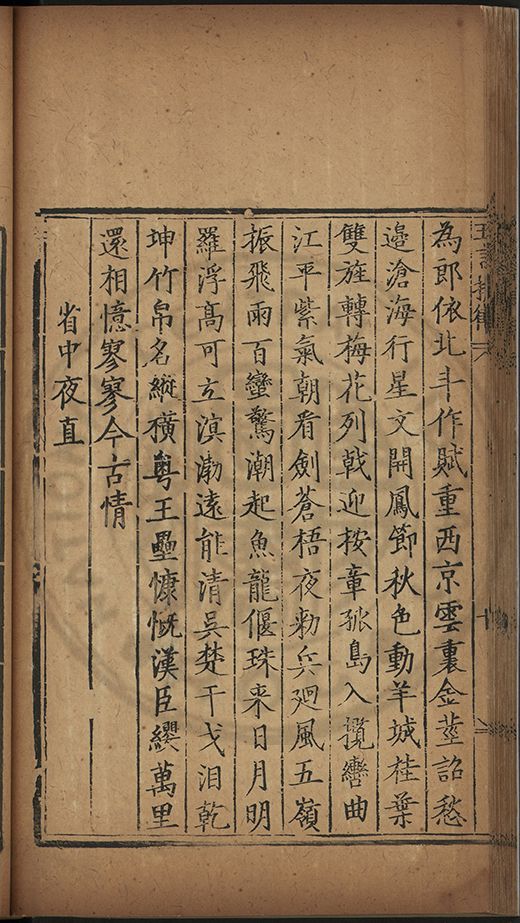 為郎依北斗作賦重西京雲裏金莖詔愁
邉滄海行星文開鳳節秋色動羊城桂葉
雙旌轉梅花列戟迎按章孤島入攬轡曲
江平紫氣朝看劍蒼梧夜勑兵廻風五嶺
振飛雨百蠻驚潮起魚龍偃珠来日月明
羅浮髙可立滇渤遠能清吳楚干戈泪乾
坤竹帛名縱横粤王壘慷慨漢臣纓萬里
還相憶寥寥今古情
省中夜直